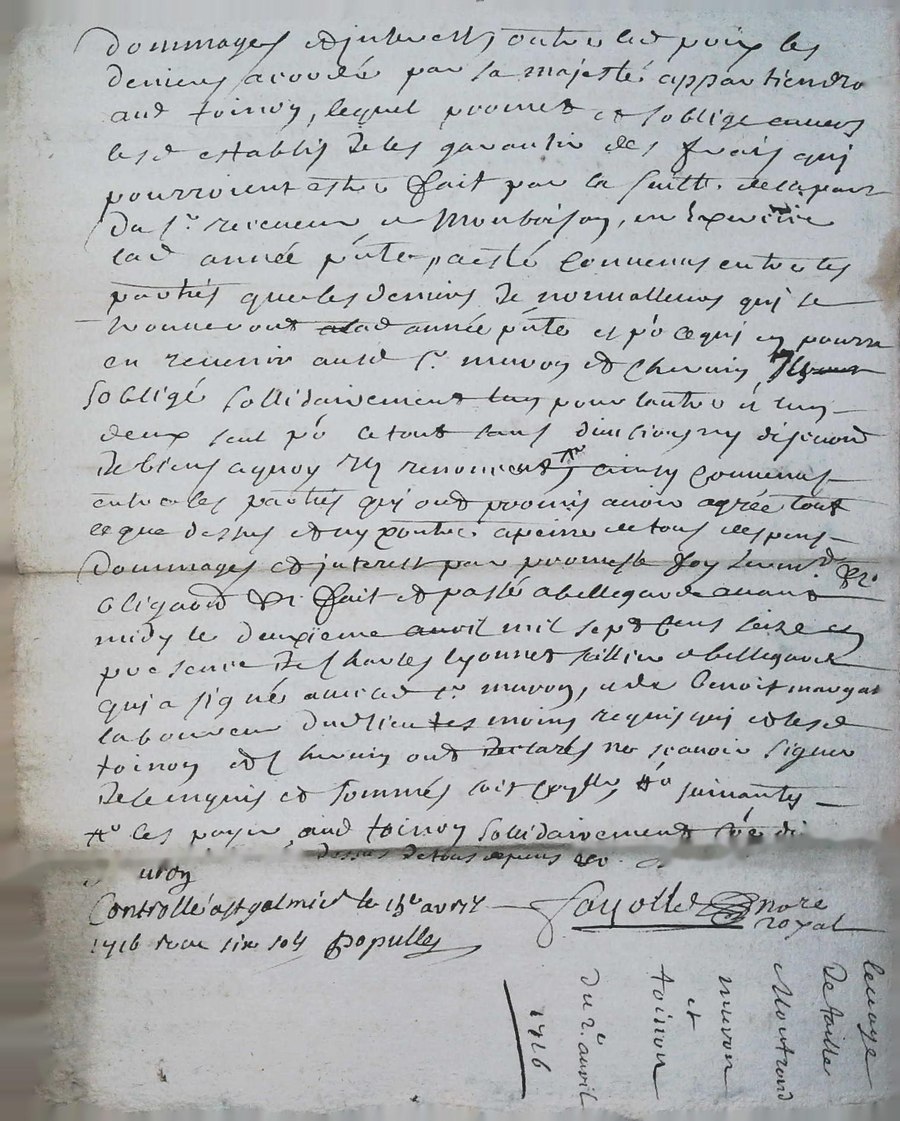 dommages et interests outre lad poix les
deniers acordé par sa majesté appartiendro
aud toinon, lequel promet et soblige envers
lesd establis de les garantir des frais qui
pourroient estre fait par la suitte de la part
du sr receveur de Montbrison,
lad année pnte, a esté convenus entre les
parties que les deniers de qui se
trouveront année pnte et po ce qui en pourra
en revenir ausd sr muron et chervin
sobligé sollidairement lun pour lautre et lun
deux seul po le tout sans division ny discution
de biens a quoy ils renoncent, ainsy convenus
entre les parties qui ont promis avoir agrée tout
ce que dessus et ny contre a peine de tous despens
dommages et interest par promesse foy serment
obligaon &c fait et passé a bellegarde avant
midy le deuxieme avril mil sept cens seize en
presence de Charles lyonnet a bellegarde
qui a signé avec led sr muron, et de benoit
laboureur dud lieu tesmoins requis qui et lesd
toinon et chervin ont declarés ne scavoir signer
de ce enquis et sommés soit suivants
les payer aud toinon sollidairement
dessus de tous depens &c
uron
Controllé a st galmier le 15e avril
1716 reçu six sols populle
fayolle nore
royal
levage
de taille
Montrond
muron
et
toinon
du 2e avril
1716